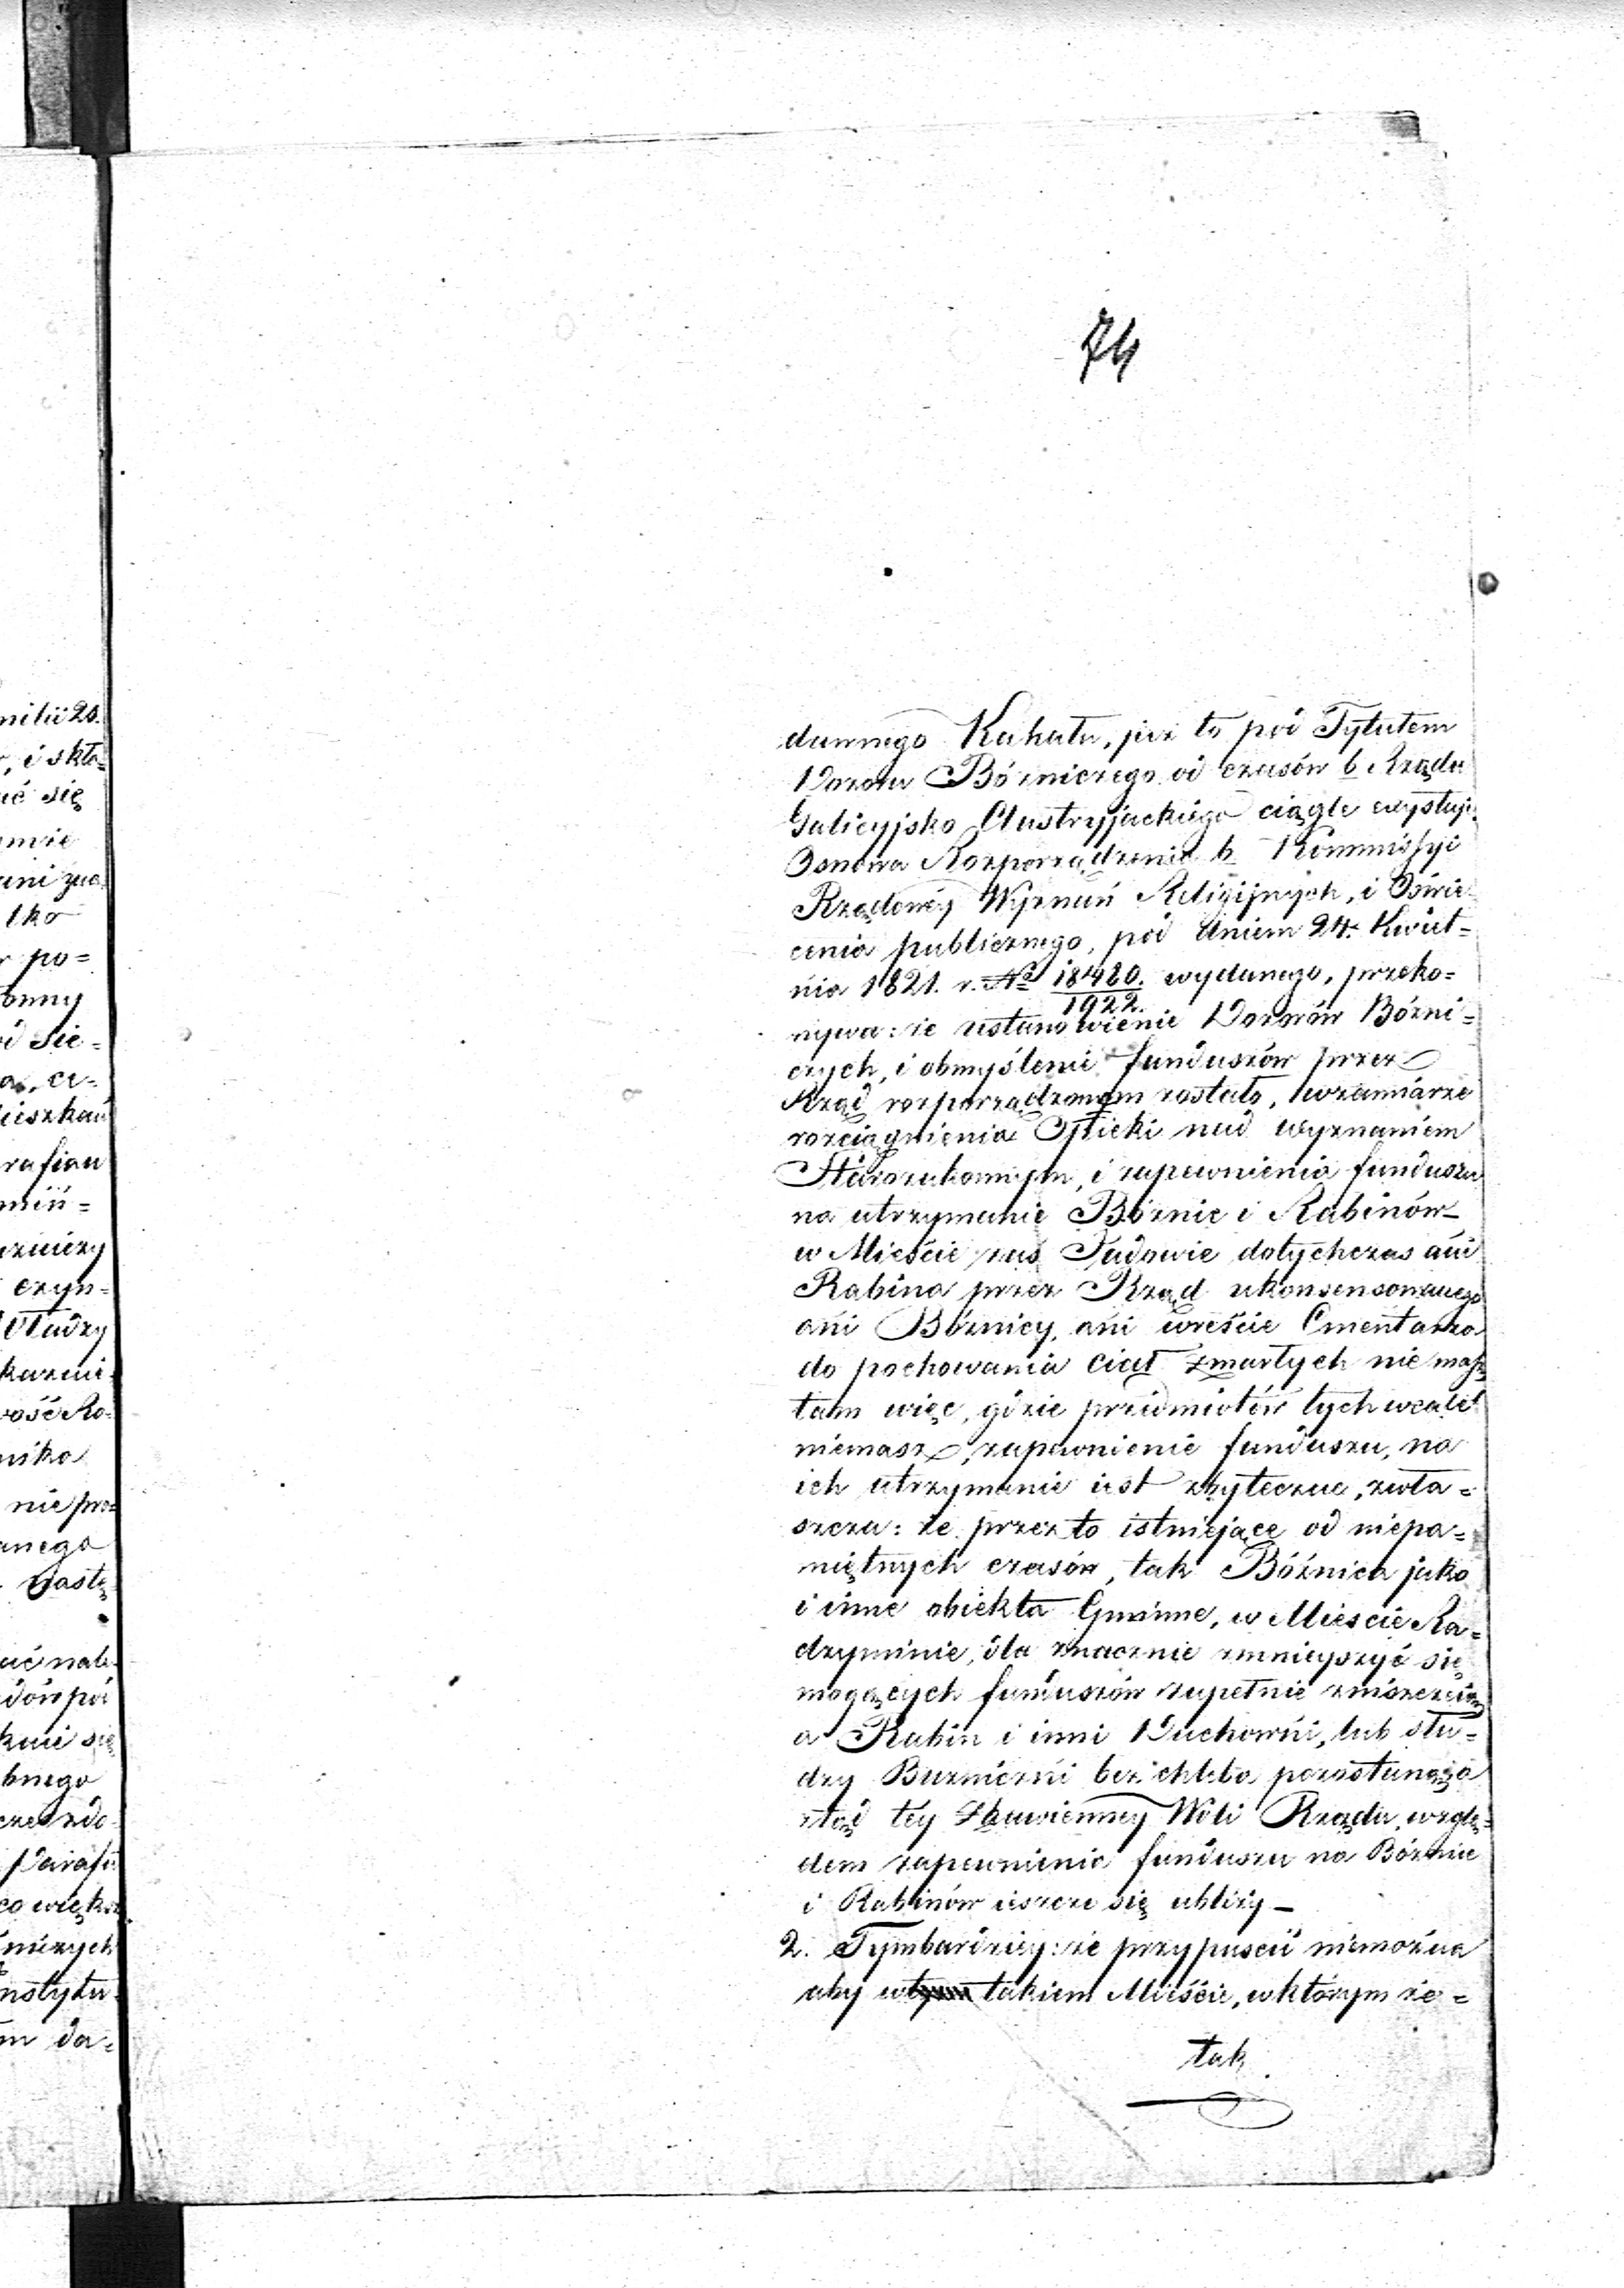 74
dawnego Kahału, już to pod Tytułem
Dozoru Bóźniczego od czasów b Rządu
Galicyjsko Austryjackiego ciągle exystuje.
Osnowa Rozporządzenia b. Kommissyi
Rządowéy Wyznań Religijnych, i Oświe=
cenia publicznego, pod dniem 24. Kwiet=
nia 1821. r. No 18480./1922. wydanego, przeko=
nywa: że ustanowienie Dozorów Bóźni=
czych, i obmyślenie funduszów przez
Rząd rozporządzonem zostało, w zamiarze
rozciągnienia Opieki nad wyznaniem
Starozakonnym, i zapewnienia funduszu
na utrzymanie Bóźnic i Rabinów_
w Mieście zaś Jadowie dotychczas ani
Rabina przez Rząd ukonsensowanego
ani Bóźnicy, ani wreście Cmentarza
do pochowania ciał zmarłych nie masz
tam więc, gdzie przedmiotów tych wcale
niemasz, zapewnienie funduszu, na
ich utrzymanie iest zbyteczne, zwła=
szcza: że przez to istniejące od niepa=
miętnych czasów, tak Bóźnica jako
i inne obiekta Gminne, w Mieście Ra=
dzyminie, dla znacznie zmnieyszyć się
mogących funduszów zupełnie zniszczeią
a Rabin i inni Duchowni, lub słu=
dzy Bużniczni bez chleba pozostaną
ztąd téy Zbawienney Woli Rządu, wzglę=
dem zapewnienia funduszu na Bóźnice
i Rabinów ieszcze się ubliży_
2. Tymbardziéy: że przypuscić niemożna
aby w takiem Mieście, w którym że=
tak
milii 20.
, i skła=
ać się
lko
po=
od Sie=
ieszkań
rafian
czyn=
Władzy
wość Ro=
nie prze=
anego
Nastę
ać nale
bnego
Parafii
co więk
m da=